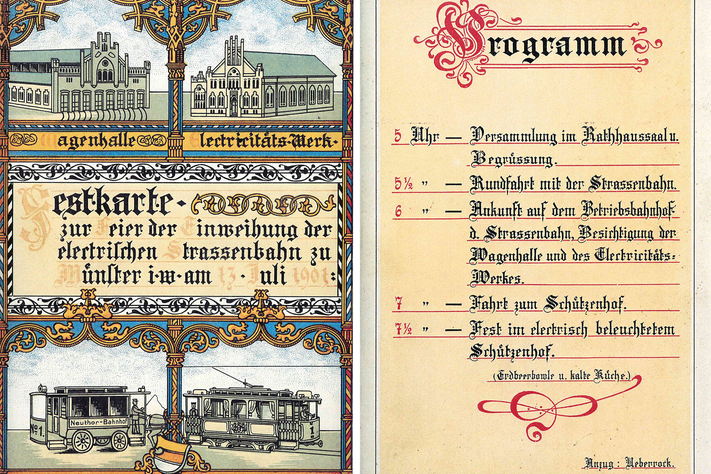 Wagenhalle
Electricitäts-Werk.
Festkarte.
zur Feier der Einweihung der
electrischen Strassenbahn zu
Münster i·w·am 13. Juli 1901:
No 1
Neuthor-Bahnhof
1
Programm
5 Uhr — Versammlung im Rathhaussaal u.
Begrüssung.
5½ " — Rundfahrt mit der Strassenbahn.
6 " — Ankunft auf dem Betriebsbahnhof
d. Strassenbahn, Besichtigung der
Wagenhalle und des Electricitäts=
Werkes.
7 " — Fahrt zum Schützenhof.
7½ " — Fest im electrisch beleuchtetem
Schützenhof.
(Erdbeerbowle u. kalte Küche.)
Anzug : Ueberrock.